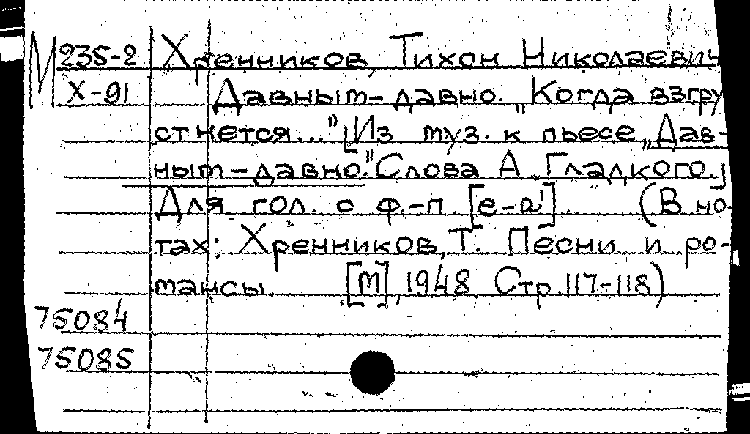 М 235-2 Хренников, Тихон Николаевич
Х-91 Давным-давно. „Когда взгру
стнется..." [Из муз. к пьесе „Дав-
ным-давно." Слова А. Гладкого.]
Для гол. с ф.-п. [e-a²] (В но-
тах: Хренников, Т. Песни и ро-
мансы. [М], 1948 Стр. 117-118)
75084
75085